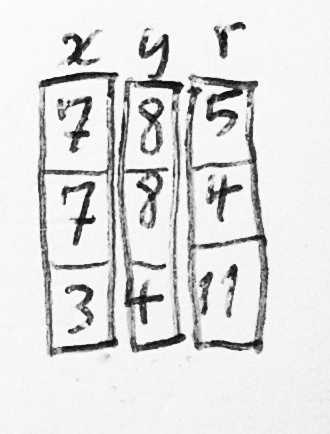 x y r
7 8 5
7 8 4
3 4 11